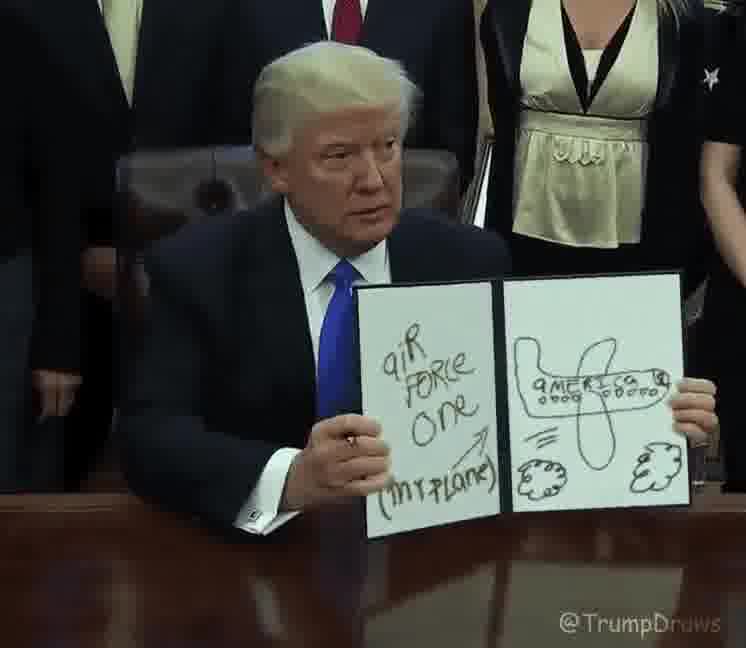 aiR
FORCe
One
(mY PLane)
aMERICa
@TrumpDraws